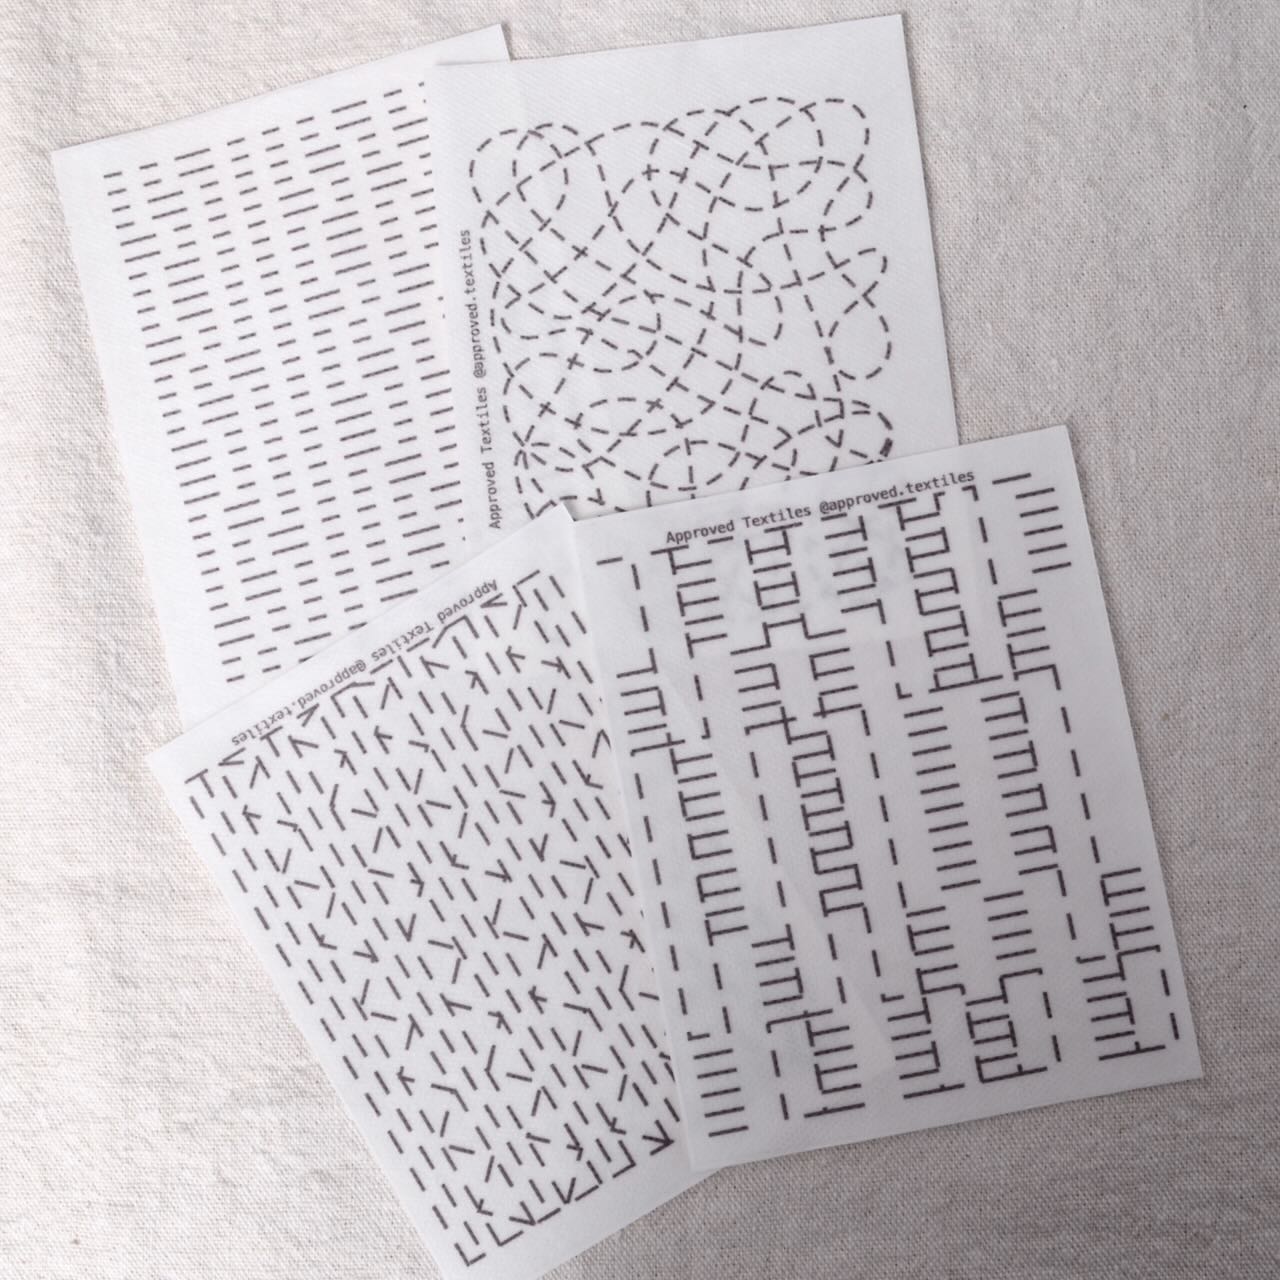 Approved Textiles @approved.textiles
Approved Textiles @approved.textiles
Approved Textiles @approved.textiles